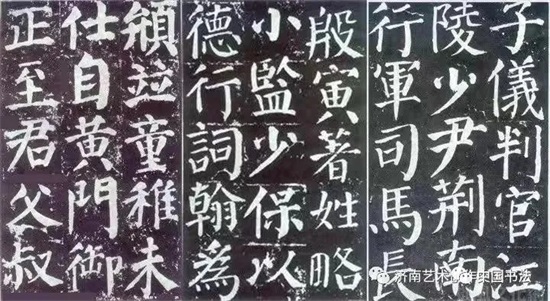 子儀判官江
陵少尹荆南
行軍司馬長
殷寅著姓略
小監少保以
德行詞翰為
並童稚未
仕自黄門御
正至君父叔
济南艺术创作中国书法